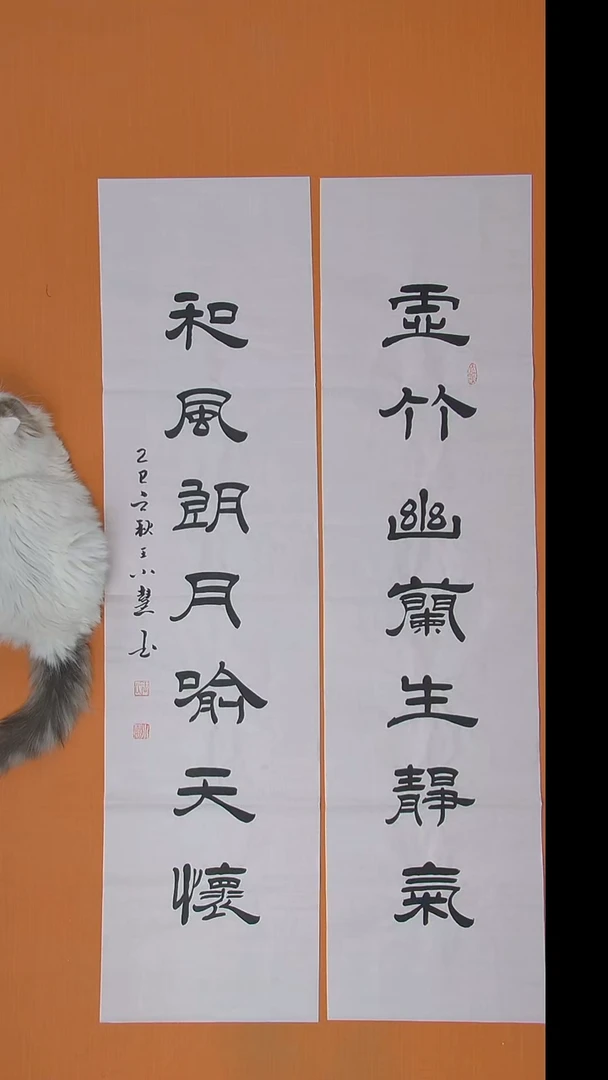 虚竹幽蘭生靜氣
和風朗月喻天懷
乙巳之秋王小慧書